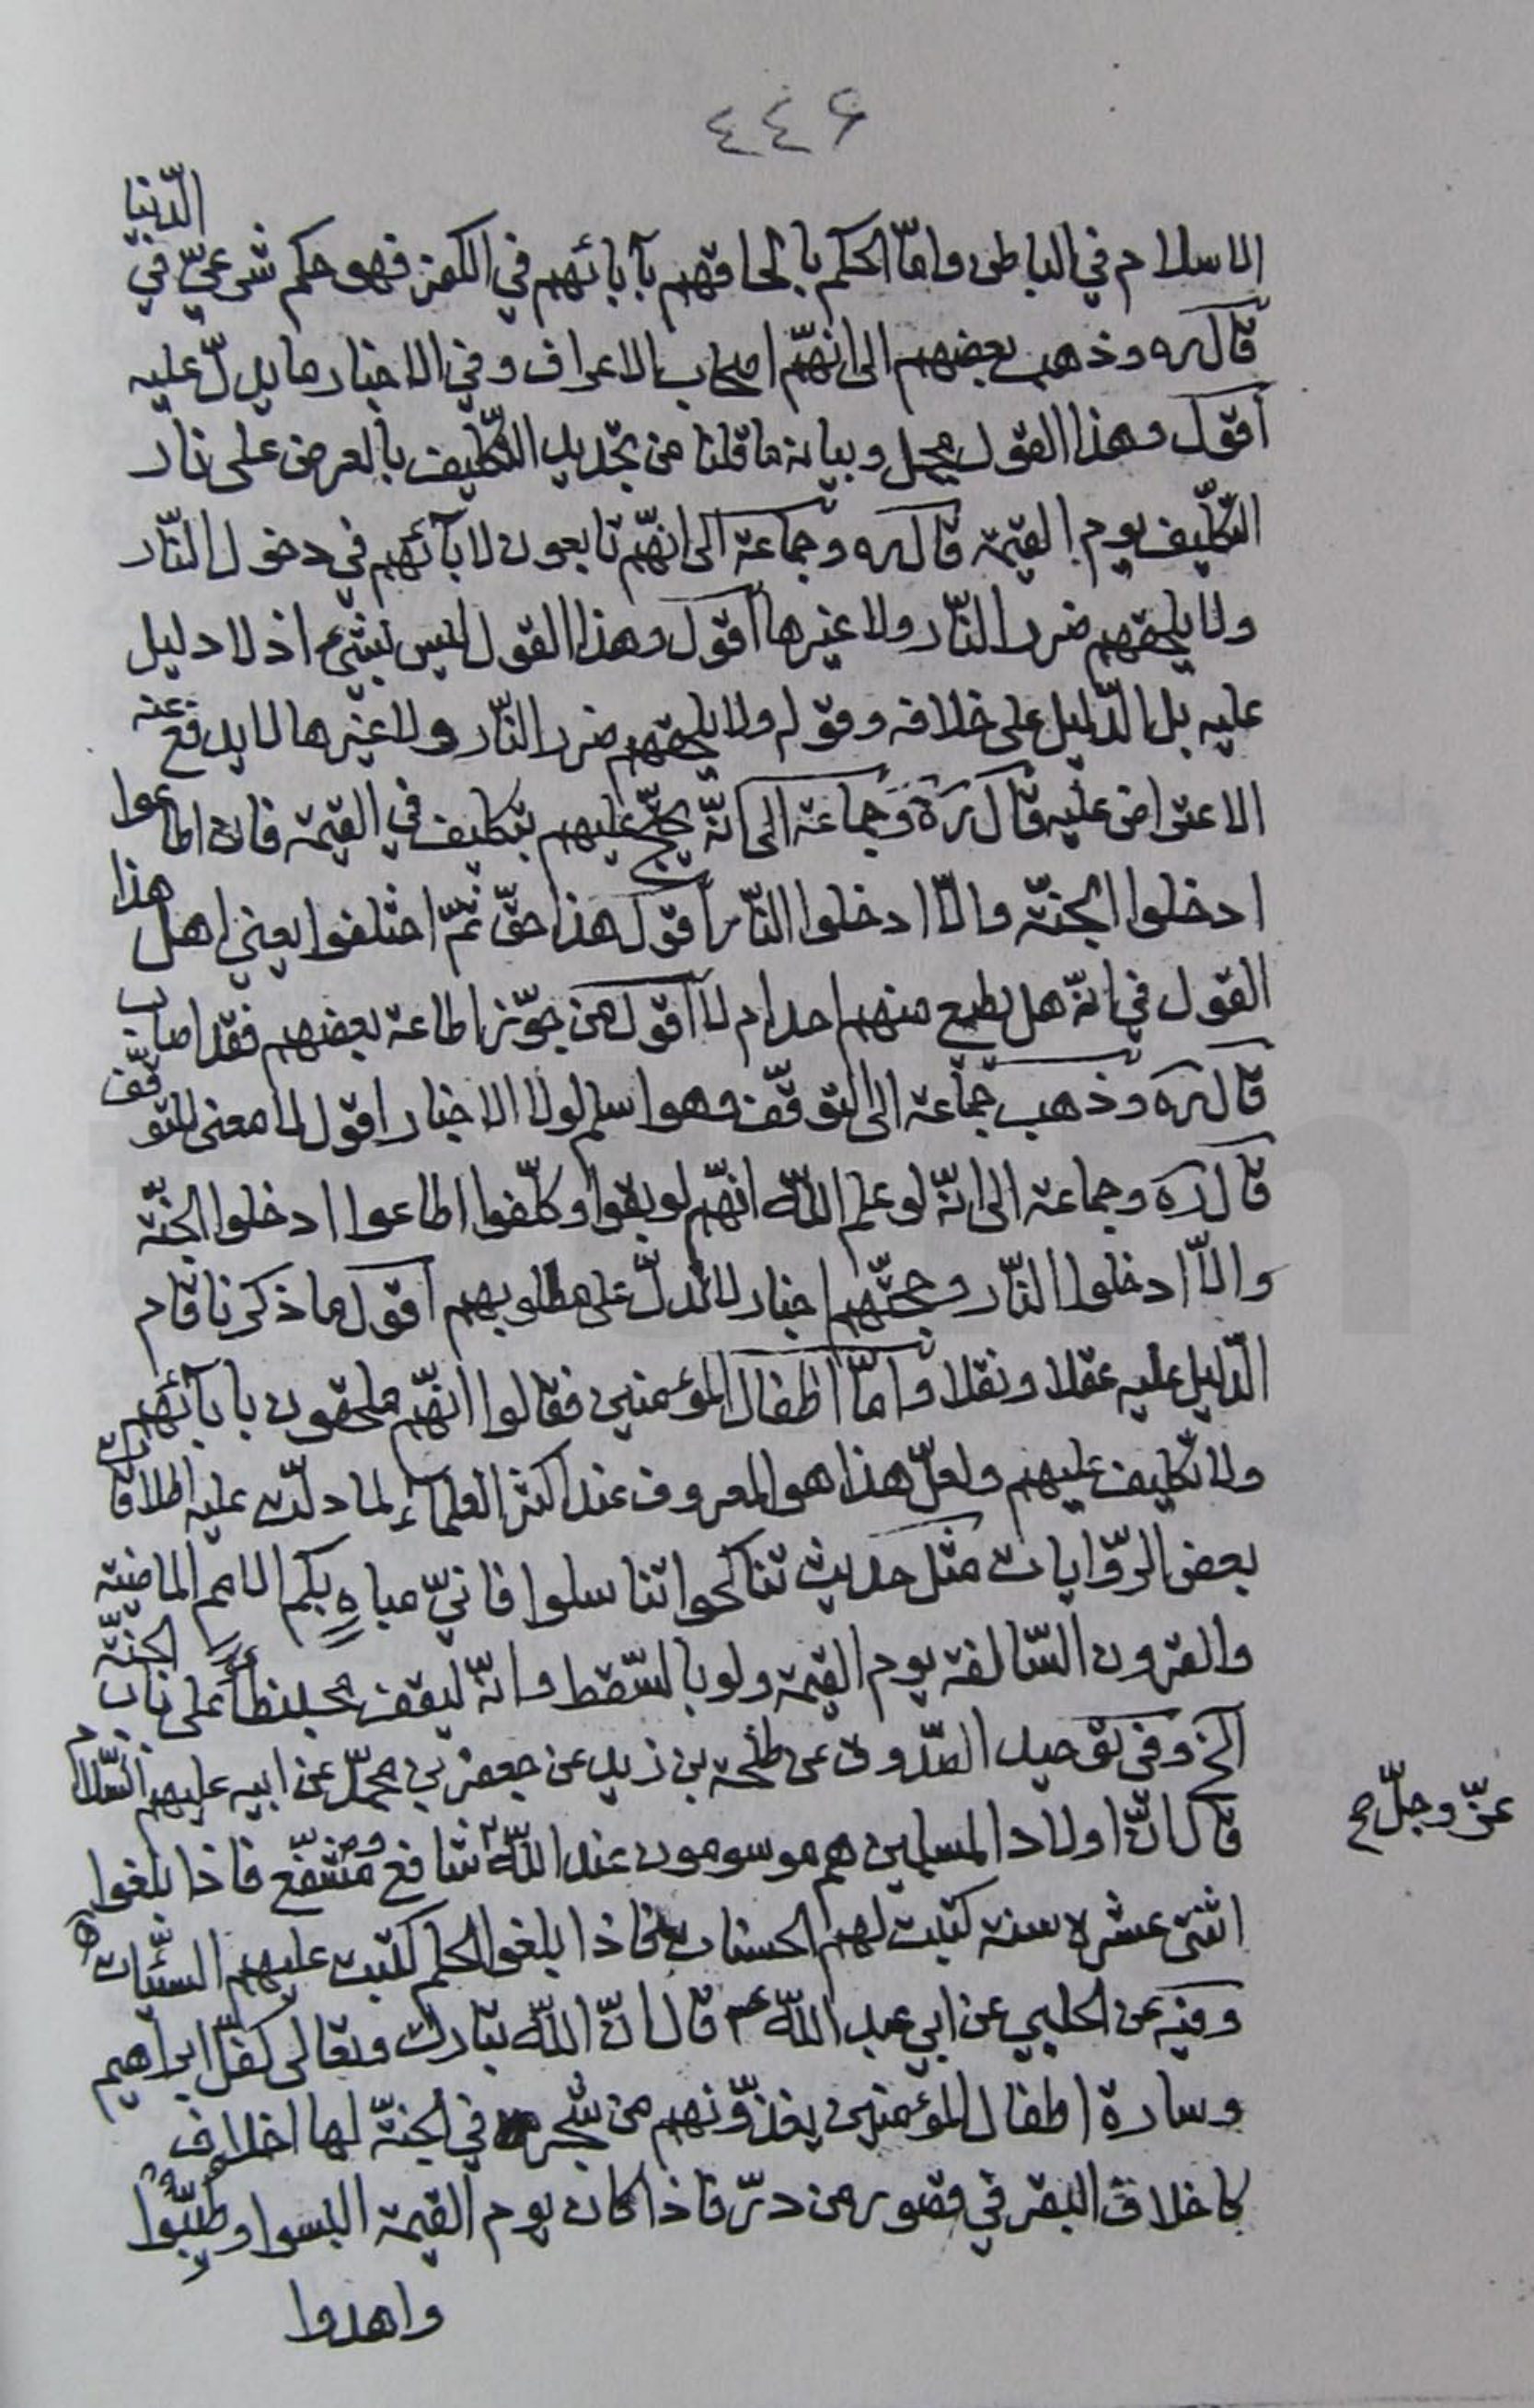 ٤٤۶
الاسلام في الباطن وامّا الحكم بالحاقهم بآبائهم في الكفر فهو حكم شرعيّ في الدّنيا
قال ره وذهب بعضهم الى انهّم اصحاب الاعراف وفي الاخبار ما يدلّ عليه
أقول وهذا القول مجمل وبيانه ما قلنا من تجديد التكّليف بالعرض على نار
التكّليف يوم القيمة قال ره وجماعة الى انهّم تابعون لابآئهم في دخول النّار
ولا يلحقهم ضرر النّار ولا غيرها أقول وهذا القول ليس بشيء اذ لا دليل
عليه بل الدّليل على خلافه وقولهم ولا يلحقهم ضرر النّار ولا غيرها لا يدفع عنه
الاعتراض عليه قال ره وجماعة الى انّه يحتجّ عليهم بتكليف في القيمة فان اطاعوا
ادخلوا الجنّة والّا ادخلوا النّار أقول هذا حقّ ثمّ اختلفوا يعني اهل هذا
القول في انّه هل يطيع منهم احد ام لا أقول من جوّز اطاعة بعضهم فقد اصاب
قال ره وذهب جماعة الى التوقّف وهو اسلم لولا الاخبار اقول لا معنى للتوقّف
قال ره وجماعة الى انّه لو علم اللّه انهّم لو بقوا وكلّفوا اطاعوا ادخلوا الجنّة
والّا ادخلوا النّار وحجتّهم اخبار لا تدلّ على مطلوبهم أقول ما ذكرنا قام
الدّليل عليه عقلا ونقلا وامّا اطفال المؤمنين فقالوا انهّم ملحقون بابآئهم
ولا تكليف عليهم ولعلّ هذا هو المعروف عند اكثر العلمآء لما دلّت عليه اطلاقات
بعض الرّوايات مثل حديث تناكحوا تناسلوا فانيّ مباهٍ بكم الامم الماضية
والقرون السّالفة يوم القيمة ولو بالسّقط وانّه ليقف محبنطأً على باب الجنّة
الخ وفي توحيد الصّدوق عن طلحة بن زيد عن جعفر بن محمّد عن ابيه عليهم السّلام
قال انّ اولاد المسلمين هم موسومون عند اللّه شافع ومشفّع فاذا بلغوا
عزّ وجلّ صح
اثنتى عشرة سنة كتبت لهم الحسنات فاذا بلغوا الحلم كتبت عليهم السيّئات
وفيه عن الحلبي عن ابي عبد اللّه ع قال انّ اللّه تبارك وتعالى كفّل ابراهيم
وسارة اطفال المؤمنين يغذّونهم من شجرة في الجنّة لها اخلاف
كاخلاف البقر في قصور من درّ فاذا كان يوم القيمة البسوا وطيّبوا
واهدوا